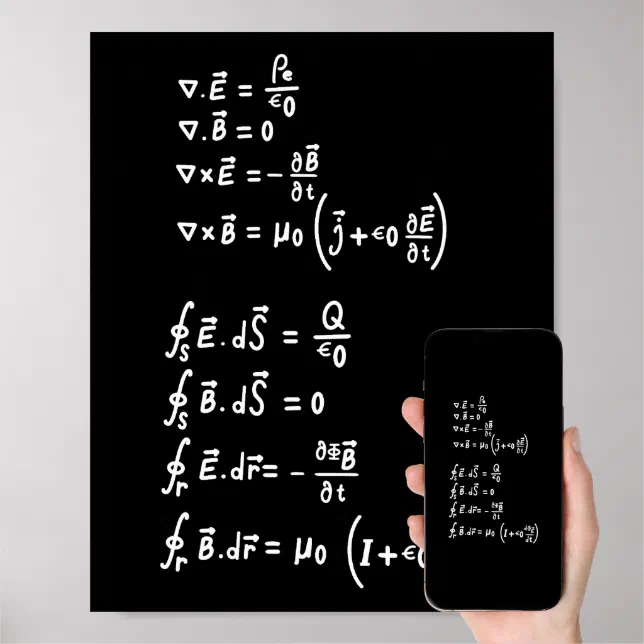 ∇.E⃗ = ρe/ϵ0
∇.B⃗ = 0
∇×E⃗ = -∂B⃗/∂t
∇×B⃗ = μ0 (j⃗+ϵ0 ∂E⃗/∂t)
∮S E⃗.dS⃗ = Q/ϵ0
∮S B⃗.dS⃗ = 0
∮r E⃗.dr⃗= - ∂ΦB⃗/∂t
∮r B⃗.dr⃗= μ0 (I+ϵ0
∇.E⃗ = ρe/ϵ0
∇.B⃗ = 0
∇×E⃗ = -∂B⃗/∂t
∇×B⃗ = μ0 (j⃗+ϵ0 ∂E⃗/∂t)
∮S E⃗.dS⃗ = Q/ϵ0
∮S B⃗.dS⃗ = 0
∮r E⃗.dr⃗= - ∂ΦB⃗/∂t
∮r B⃗.dr⃗= μ0 (I+ϵ0 dΦE/dt)